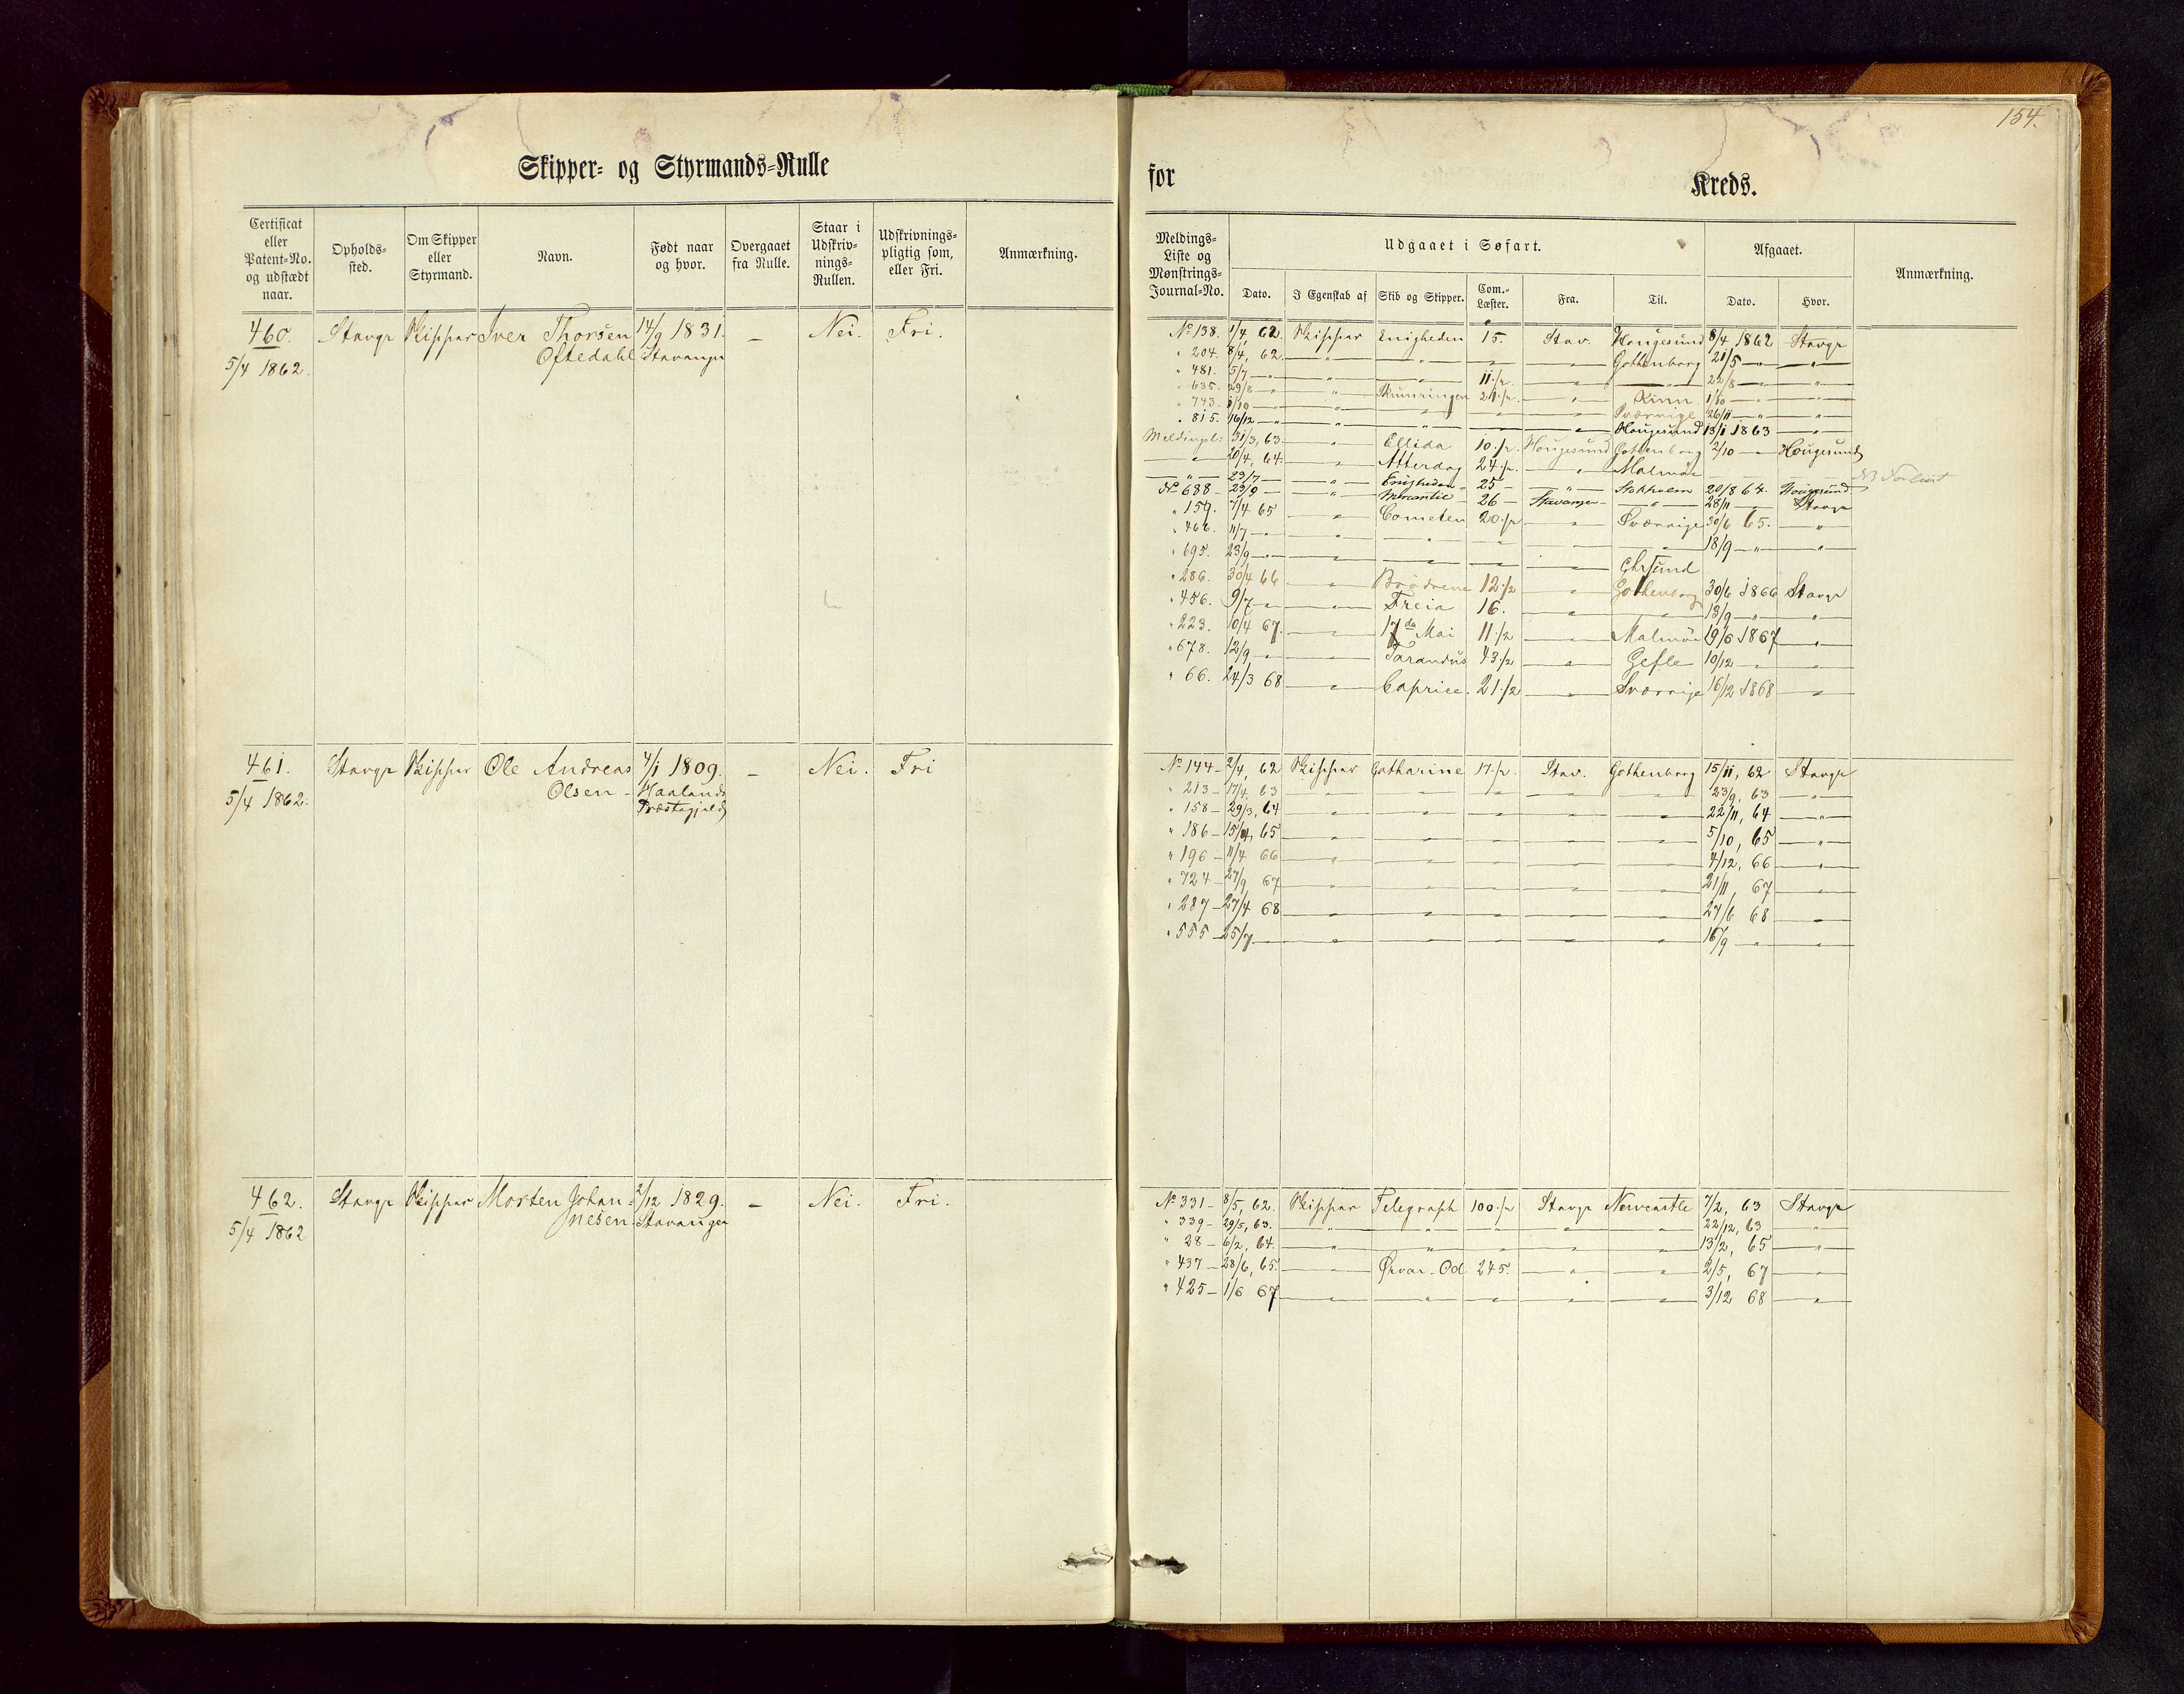 154.
Skipper- og Styrmands-Rulle
for Kreds.
Certificat eller Patent-No. og udstædt naar.
Opholds-sted.
Om Skipper eller Styrmand.
Navn.
Født naar og hvor.
Overgaaet fra Rulle.
Staar i Udskriv-nings-Rullen.
Udskrivnings-pligtig som, eller Fri.
Anmærkning.
Meldings-Liste og Mønstrings-Journal-No.
Udgaaet i Søfart.
Dato.
I Egenskab af
Skib og Skipper.
Com.-Læster.
Fra.
Til.
Afgaaet.
Dato.
Hvor.
Anmærkning.
460. Stavgr Skipper Iver Thorsen 14/9 1831. — Nei. Fri.
5/4 1862. Oftedahl Stavanger
No 138. 1/4, 62. Skipper Enigheden 15. Stav. Hougesund 8/4 1862 Stavgr
" 204. 8/4, 62 — " — — " — — Gothenborg 21/5 — " — — " —
" 481. 5/7 — " — — " — — " — 11 1/2. — " — — " — 22/8 — " — — " —
" 635. 29/8 — " — — " — Skumringen 21 1/2. — " — Kinn 1/10 — " — — " —
" 743. 1/10 — " — — " — — " — — " — — " — Sværrige 26/11 — " — — " —
" 815. 16/12 — " — — " — — " — — " — — " — Hougesund 13/1 1863 — " —
Meldingsl: 31/3, 63 — " — Ellida 10 1/2. Hougesund Gothenborg 2/10 — " — Hougesund
— " — 20/4, 64. — " — Atterdag 24 1/2. — " — Malmöe
— " — 23/7 — — " — Enigheden 25 — — " — Stokholm 20/8 64. Hougesund
No 688 — 29/9 — — " — Mercantic 26 — Stavanger — " — 28/11 — Stavgr
" 159. 7/4 65 — " — Cometen 20 1/2 — " — Sværrige 30/6 65. — " —
" 466. 11/7 — " — — " — — " — — " — — " — — " — 18/9 — " — — " —
" 695. 23/9 — " — — " — — " — — " — — " — Chrsund
" 286. 30/4 66 — " — Brödrene 12 1/2 — " — Gothenborg 30/6 1866 Stavgr
" 456. 9/7 — " — — " — Freia 16. — " — — " — 13/9 — " — — " —
" 223. 10/4 67. — " — 17de Mai 11 1/2 — " — Malmöe 19/6 1867 — " —
" 678. 12/9 — " — — " — Tarandus 43 1/2 — " — Gefle 10/12 — " — — " —
" 66. 24/3 68 — " — Caprice. 21 1/2 — " — Sværrige 16/12 1868 — " —
461. Stavgr Skipper Ole Andreas 4/1 1809. — Nei. Fri
5/4 1862. Olsen — Haalands
Præstegjeld
No 144 — 2/4, 62 Skipper Catharine 17 1/2. Stav. Gothenborg 15/11, 62 Stavgr
" 213 — 17/4, 63 — " — — " — — " — — " — — " — 23/9, 63 — " —
" 158 — 29/3, 64 — " — — " — — " — — " — — " — 22/11, 64 — " —
" 186 — 15/4, 65 — " — — " — — " — — " — — " — 5/10, 65 — " —
" 196 — 11/4 66 — " — — " — — " — — " — — " — 4/12, 66 — " —
" 724 — 27/9, 67 — " — — " — — " — — " — — " — 21/11, 67 — " —
" 287 — 27/4 68 — " — — " — — " — — " — — " — 27/6 68 — " —
" 555 — 25/7 — " — — " — — " — — " — — " — — " — 16/9 — " — — " —
462. Stavgr Skipper Morten Johan- 2/12 1829. — Nei. Fri.
5/4 1862 nesen. Stavanger
No 331 — 8/5, 62. Skipper Telegraph 100 1/2 Stavgr Newcastle 7/2, 63 Stavgr
" 339 — 29/5, 63. — " — — " — — " — — " — — " — 22/12, 63 — " —
" 28 — 6/2, 64. — " — — " — — " — — " — — " — 13/2, 65 — " —
" 437 — 28/6, 65. — " — Ørvar-Od 245. — " — — " — 2/5, 67 — " —
" 425 — 1/6 67 — " — — " — — " — — " — — " — 3/12 68 — " —